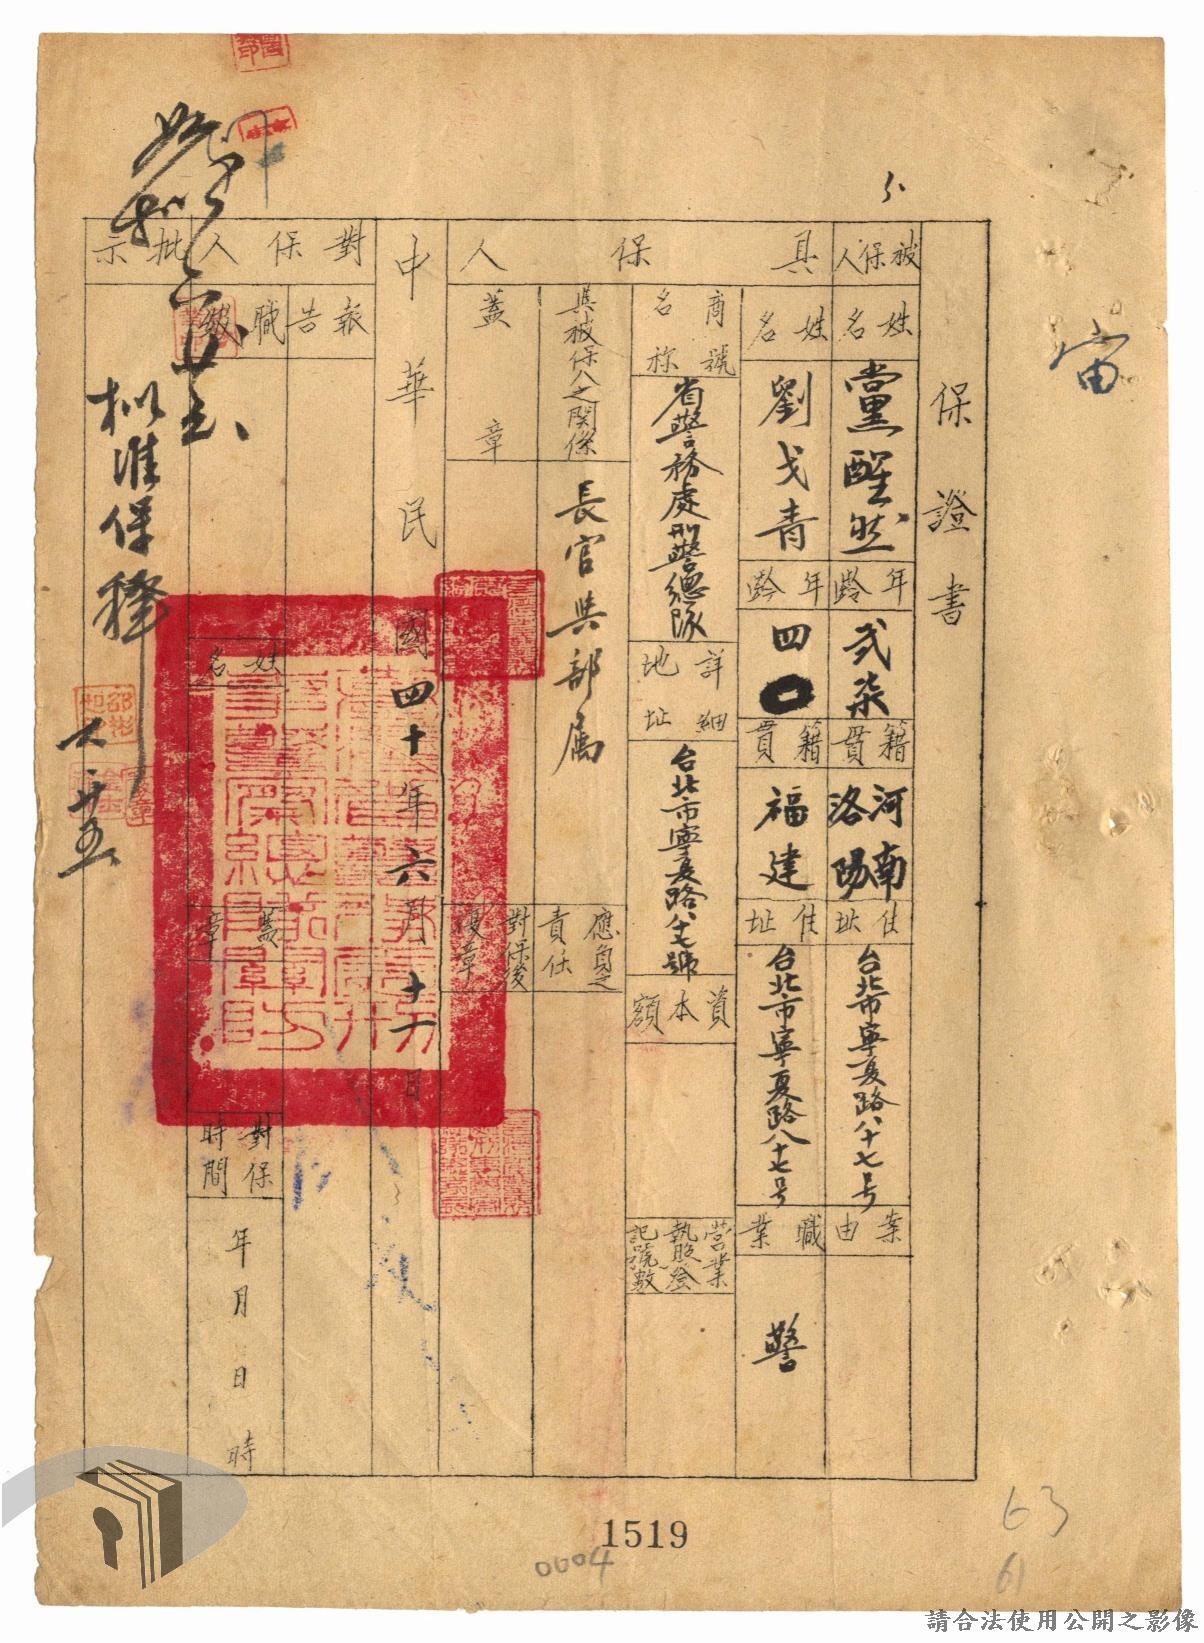 保證書
被保人
姓名
黨醒然
年齡
弍柒
籍貫
河南
洛陽
住址
台北市寧夏路八十七号
案由
具保人
姓名
劉戈青
年齡
四〇
籍貫
福建
住址
台北市寧夏路八十七号
職業
警
商號
名称
省警務處刑警總隊
詳細
地址
台北市寧夏路八十七號
資本額
营業
執照登
記號數
與被保人之關係
長官與部属
應負之
責任
蓋章
對保後
覆章
中華民國四十年六月十一日
對保人
報告
職級
姓名
蓋章
對保
時間
年月日時
批示
擬准保釋
1519
0004
63
61
請合法使用公開之影像